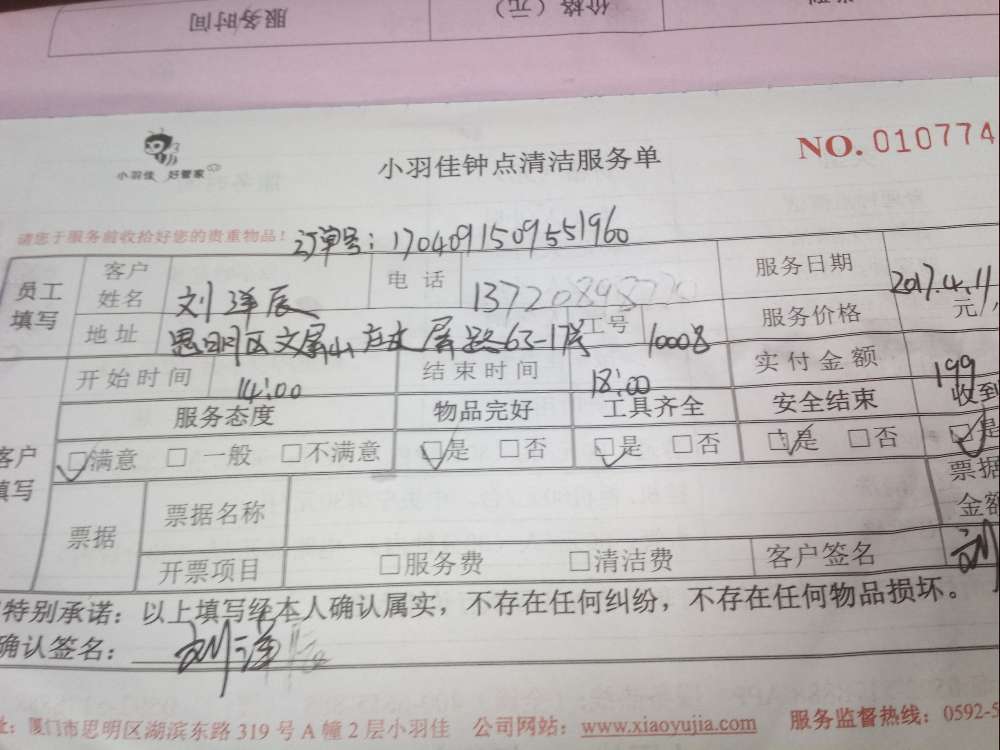 服务时间
价格（元）
小羽佳 好管家
小羽佳钟点清洁服务单
NO. 010774
请您于服务前收拾好您的贵重物品！
订单号：1704091509551960
员工填写
客户姓名
刘泽辰
电话
服务日期
2017.4.11
地址
思明区文屏山庄文屏路63-17号
工号
10008
服务价格
元/
开始时间
14:00
结束时间
18:00
实付金额
199
客户填写
服务态度
物品完好
工具齐全
安全结束
收到
□满意 □一般 □不满意
□是 □否
□是 □否
□是 □否
□是
票据
票据名称
票据金额
开票项目
□服务费 □清洁费
客户签名
刘
特别承诺：以上填写经本人确认属实，不存在任何纠纷，不存在任何物品损坏。
确认签名：刘泽辰
址：厦门市思明区湖滨东路319号A幢2层小羽佳 公司网站：www.xiaoyujia.com 服务监督热线：0592-5